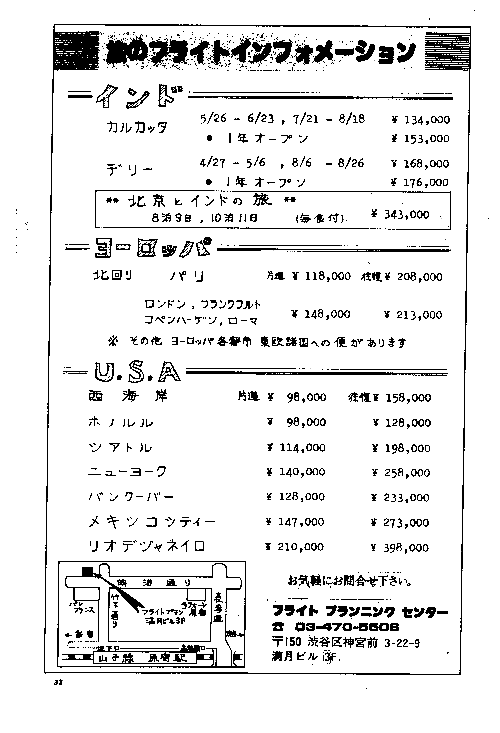 旅のフライトインフォメーション
インド
カルカッタ 5/26 - 6/23 , 7/21 - 8/18 ¥ 134,000
• 1年オープン ¥ 153,000
デリー 4/27 - 5/6 , 8/6 - 8/26 ¥ 168,000
• 1年オープン ¥ 176,000
** 北京とインドの旅 **
8泊9日 , 10泊11日 (毎食付) ¥ 343,000
ヨーロッパ
北回り パリ 片道 ¥ 118,000 往復 ¥ 208,000
ロンドン , フランクフルト
コペンハーゲン , ローマ ¥ 148,000 ¥ 213,000
※ その他 ヨーロッパ各都市 東欧諸国への便があります
U.S.A
西海岸 片道 ¥ 98,000 往復 ¥ 158,000
ホノルル ¥ 98,000 ¥ 128,000
シアトル ¥ 114,000 ¥ 198,000
ニューヨーク ¥ 140,000 ¥ 258,000
バンクーバー ¥ 128,000 ¥ 233,000
メキシコシティー ¥ 147,000 ¥ 273,000
リオデジャネイロ ¥ 210,000 ¥ 398,000
お気軽にお問合せ下さい。
フライト プランニング センター
☎ 03-470-5608
〒150 渋谷区神宮前 3-22-9
満月ビル 3F.
竹下通り
フライトプラン
満月ビル3F
山手線 原宿駅
32